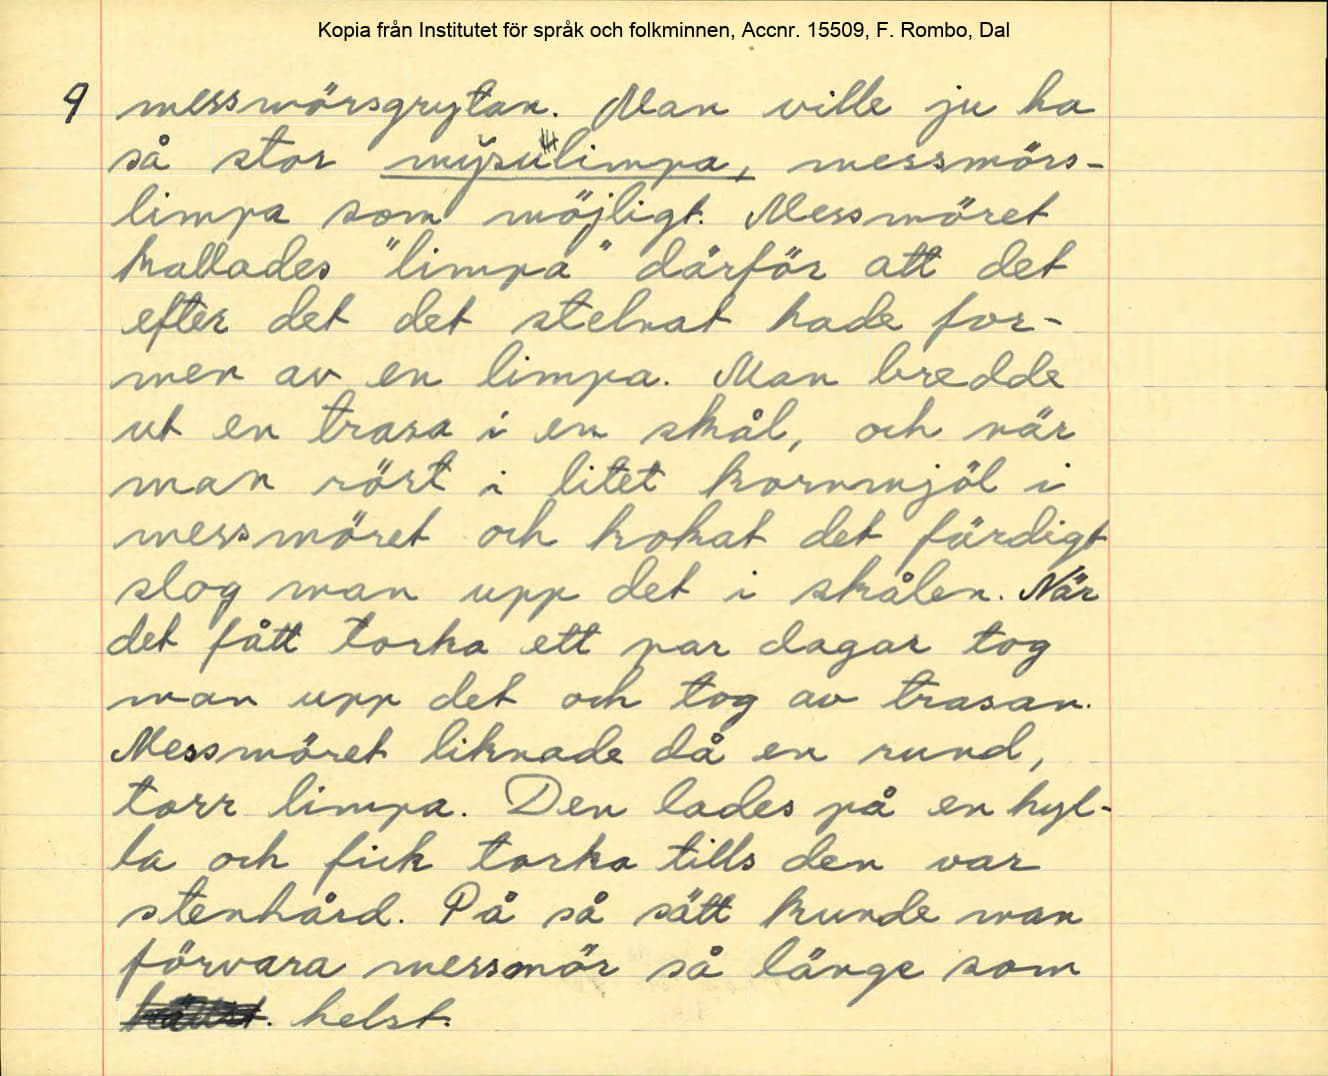 Kopia från Institutet för språk och folkminnen, Accnr. 15509, F. Rombo, Dal
9 messmörsgrytan. Man ville ju ha
så stor mysulimpa, messmörs-
limpa som möjligt. Messmöret
kallades "limpa" därför att det
efter det det stelnat hade for-
men av en limpa. Man bredde
ut en trasa i en skål, och när
man rört i litet kornmjöl i
messmöret och kokat det färdigt
slog man upp det i skålen. När
det fått torka ett par dagar tog
man upp det och tog av trasan.
Messmöret liknade då en rund,
torr limpa. Den lades på en hyl-
la och fick torka tills den var
stenhård. På så sätt kunde man
förvara messmör så länge som
helst.